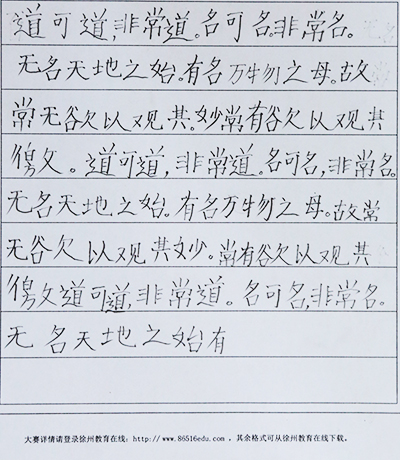 道可道,非常道。名可名。非常名。
无名天地之始。有名万物之母。故
常无欲以观其。妙常有欲以观其
徼。道可道,非常道。名可名,非常名。
无名天地之始。有名万物之母。故常
无欲以观其妙。常有欲以观其
徼道可道,非常道。名可名,非常名。
无名天地之始有
大赛详情请登录徐州教育在线:http://www.86516edu.com 。其余格式可从徐州教育在线下载。